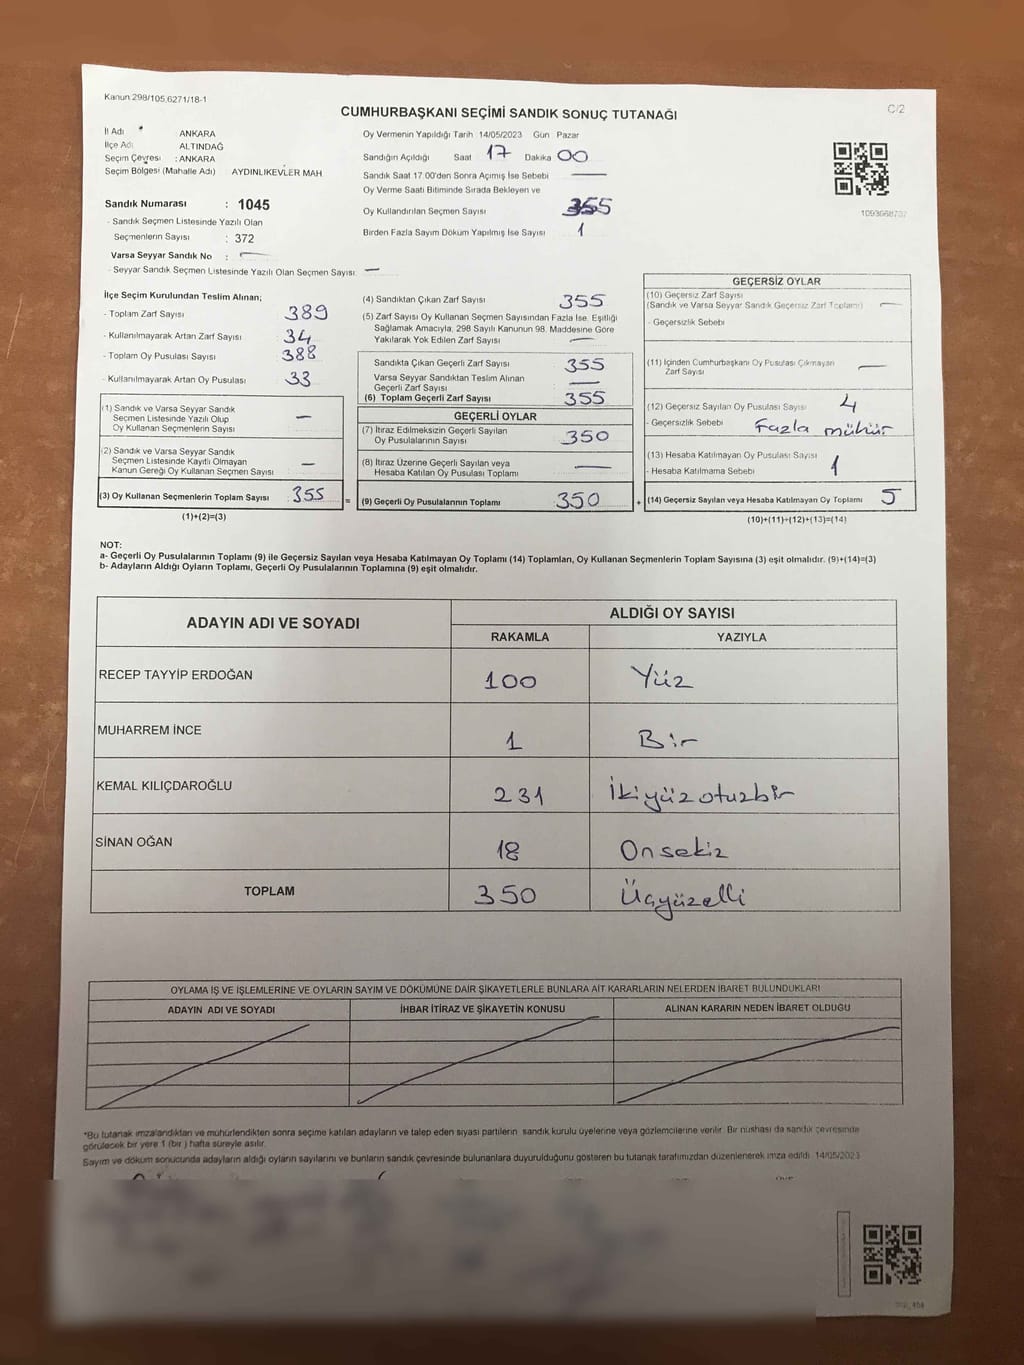 Kanun:298/105,6271/18-1
C/2
CUMHURBAŞKANI SEÇİMİ SANDIK SONUÇ TUTANAĞI
İl Adı ANKARA
İlçe Adı ALTINDAĞ
Seçim Çevresi : ANKARA
Seçim Bölgesi (Mahalle Adı) AYDINLIKEVLER MAH
Sandık Numarası : 1045
- Sandık Seçmen Listesinde Yazılı Olan
Seçmenlerin Sayısı : 372
Varsa Seyyar Sandık No :
- Seyyar Sandık Seçmen Listesinde Yazılı Olan Seçmen Sayısı:
Oy Vermenin Yapıldığı Tarih 14/05/2023 Gün Pazar
Sandığın Açıldığı Saat 17 Dakika 00
Sandık Saat 17.00'den Sonra Açımış İse Sebebi
Oy Verme Saati Bitiminde Sırada Bekleyen ve
Oy Kullandırılan Seçmen Sayısı 355
Birden Fazla Sayım Döküm Yapılmış İse Sayısı 1
İlçe Seçim Kurulundan Teslim Alınan;
- Toplam Zarf Sayısı 389
- Kullanılmayarak Artan Zarf Sayısı 34
- Toplam Oy Pusulası Sayısı 388
- Kullanılmayarak Artan Oy Pusulası 33
(1) Sandık ve Varsa Seyyar Sandık
Seçmen Listesinde Yazılı Olup
Oy Kullanan Seçmenlerin Sayısı
(2) Sandık ve Varsa Seyyar Sandık
Seçmen Listesinde Kayıtlı Olmayan
Kanun Gereği Oy Kullanan Seçmen Sayısı
(3) Oy Kullanan Seçmenlerin Toplam Sayısı 355
(1)+(2)=(3)
=
(4) Sandıktan Çıkan Zarf Sayısı 355
(5) Zarf Sayısı Oy Kullanan Seçmen Sayısından Fazla İse, Eşitliği
Sağlamak Amacıyla, 298 Sayılı Kanunun 98. Maddesine Göre
Yakılarak Yok Edilen Zarf Sayısı
Sandıkta Çıkan Geçerli Zarf Sayısı 355
Varsa Seyyar Sandıktan Teslim Alınan
Geçerli Zarf Sayısı
(6) Toplam Geçerli Zarf Sayısı 355
GEÇERLİ OYLAR
(7) İtiraz Edilmeksizin Geçerli Sayılan
Oy Pusulalarının Sayısı 350
(8) İtiraz Üzerine Geçerli Sayılan veya
Hesaba Katılan Oy Pusulası Toplamı
(9) Geçerli Oy Pusulalarının Toplamı 350
+
GEÇERSİZ OYLAR
(10) Geçersiz Zarf Sayısı
(Sandık ve Varsa Seyyar Sandık Geçersiz Zarf Toplamı)
- Geçersizlik Sebebi
(11) İçinden Cumhurbaşkanı Oy Pusulası Çıkmayan
Zarf Sayısı
(12) Geçersiz Sayılan Oy Pusulası Sayısı 4
- Geçersizlik Sebebi Fazla mühür
(13) Hesaba Katılmayan Oy Pusulası Sayısı 1
- Hesaba Katılmama Sebebi
(14) Geçersiz Sayılan veya Hesaba Katılmayan Oy Toplamı 5
(10)+(11)+(12)+(13)=(14)
NOT:
a- Geçerli Oy Pusulalarının Toplamı (9) ile Geçersiz Sayılan veya Hesaba Katılmayan Oy Toplamı (14) Toplamları, Oy Kullanan Seçmenlerin Toplam Sayısına (3) eşit olmalıdır. (9)+(14)=(3)
b- Adayların Aldığı Oyların Toplamı, Geçerli Oy Pusulalarının Toplamına (9) eşit olmalıdır.
ADAYIN ADI VE SOYADI ALDIĞI OY SAYISI
RAKAMLA YAZIYLA
RECEP TAYYİP ERDOĞAN 100 Yüz
MUHARREM İNCE 1 Bir
KEMAL KILIÇDAROĞLU 231 İkiyüzotuzbir
SİNAN OĞAN 18 Onsekiz
TOPLAM 350 Üçyüzelli
OYLAMA İŞ VE İŞLEMLERİNE VE OYLARIN SAYIM VE DÖKÜMÜNE DAİR ŞİKAYETLERLE BUNLARA AİT KARARLARIN NELERDEN İBARET BULUNDUKLARI
ADAYIN ADI VE SOYADI İHBAR İTİRAZ VE ŞİKAYETİN KONUSU ALINAN KARARIN NEDEN İBARET OLDUĞU
*Bu tutanak imzalandıktan ve mühürlendikten sonra seçime katılan adayların ve talep eden siyasi partilerin sandık kurulu üyelerine veya gözlemcilerine verilir. Bir nüshası da sandık çevresinde
görülecek bir yere 1 (bir ) hafta süreyle asılır.
Sayım ve döküm sonucunda adayların aldığı oyların sayılarını ve bunların sandık çevresinde bulunanlara duyurulduğunu gösteren bu tutanak tarafımızdan düzenlenerek imza edildi. 14/05/2023